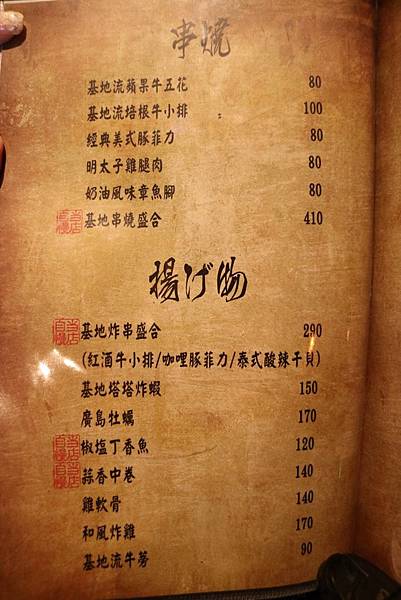 串燒
基地流蘋果牛五花 80
基地流培根牛小排 100
經典美式豚菲力 80
明太子雞腿肉 80
奶油風味章魚腳 80
當店自慢 基地串燒盛合 410
揚げ物
當店自慢 基地炸串盛合 290
(紅酒牛小排/咖哩豚菲力/泰式酸辣干貝)
基地塔塔炸蝦 150
廣島牡蠣 170
當店自慢 椒塩丁香魚 120
當店自慢 蒜香中卷 140
雞軟骨 140
和風炸雞 170
基地流牛蒡 90